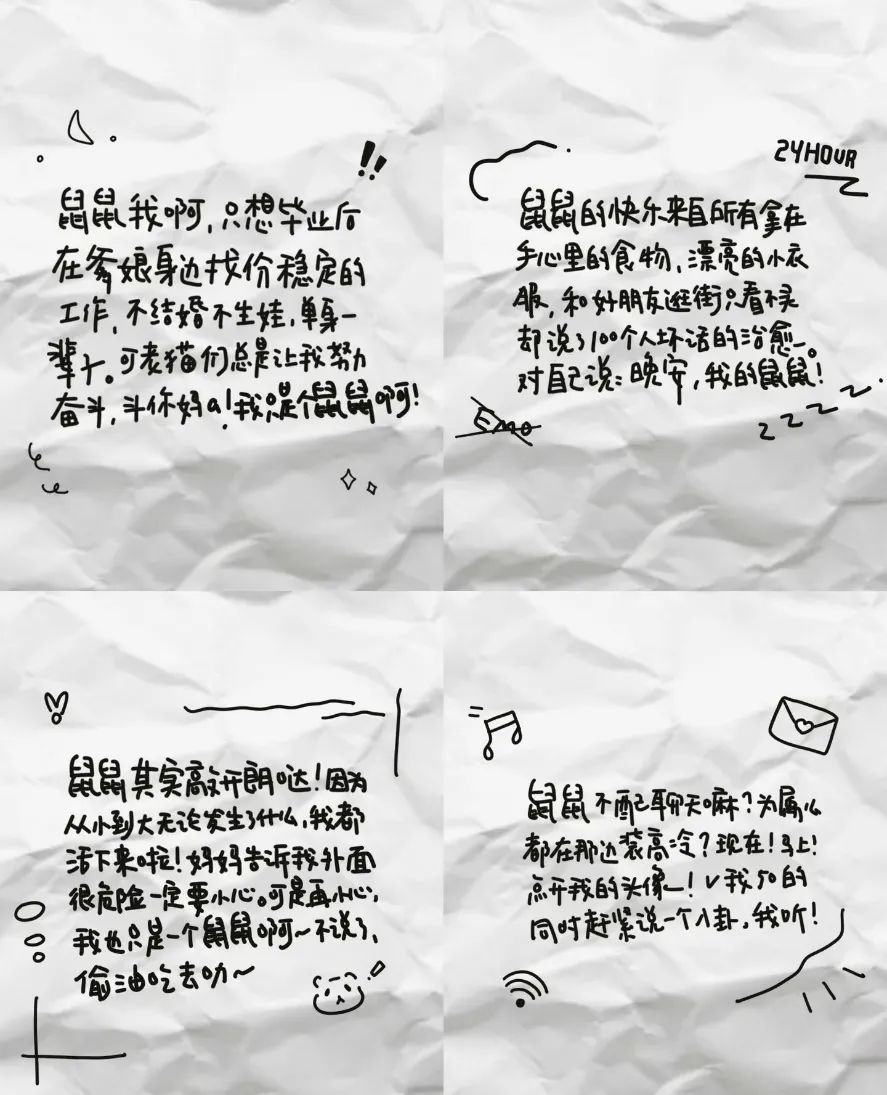 鼠鼠我啊,只想毕业后
在爹娘身边找份稳定的
工作,不结婚不生娃,单身一
辈子。可老猫们总是让我努力
奋斗,斗你妈a!我只是个鼠鼠啊!
24HOUR
鼠鼠的快乐来自所有拿在
手心里的食物,漂亮的小衣
服,和好朋友逛街只看不买
却说了100个人坏话的治愈~。
对自己说:晚安,我的鼠鼠!
Emo
z z z z
鼠鼠其实敲开朗哒!因为
从小到大无论发生了什么,我都
活下来啦!妈妈告诉我外面
很危险一定要小心。可是再小心,
我也只是一个鼠鼠啊~不说了,
偷油吃去叻~
鼠鼠不配聊天嘛?为属么
都在那边装高冷?现在!马上!
点开我的头像_!v我50的
同时赶紧说一个八卦,我听!